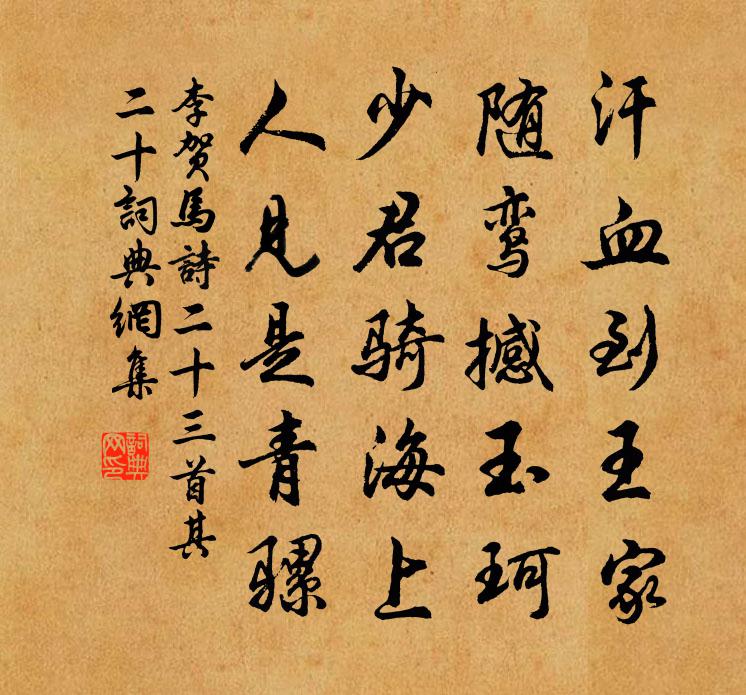 汗血到王家
随鸾撼玉珂
少君骑海上
人见是青骡
李贺馬詩二十三首其
二十詞典網集
詞典网印